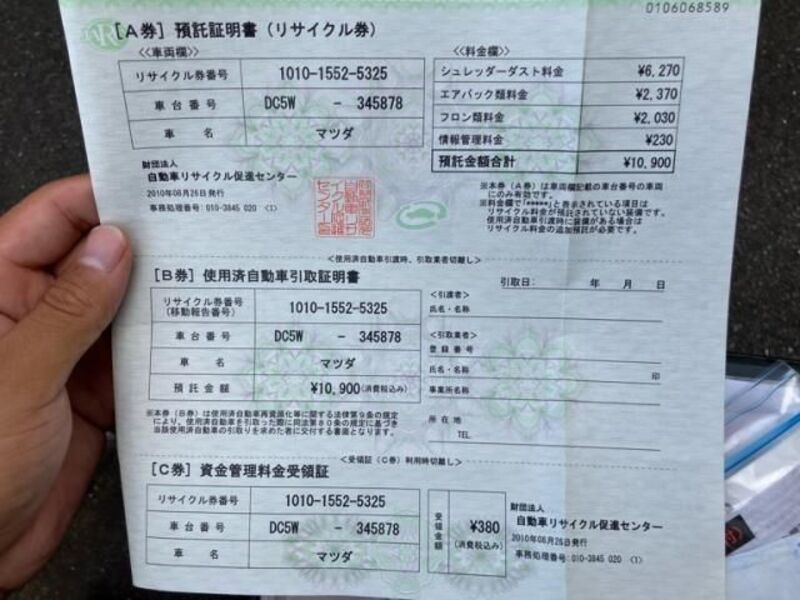 0106068589
[A券] 預託証明書(リサイクル券)
<<車両欄>>
リサイクル券番号 1010-1552-5325
車台番号 DC5W - 345878
車名 マツダ
<<料金欄>>
シュレッダーダスト料金 ¥6,270
エアバッグ類料金 ¥2,370
フロン類料金 ¥2,030
情報管理料金 ¥230
預託金額合計 ¥10,900
財団法人
自動車リサイクル促進センター
2010年08月26日発行
事務処理番号:010-3845 020 <1>
※本券(A券)は車両欄記載の車台番号の車両
にのみ有効です。
※料金欄で「*****」と表示されている項目は
リサイクル料金が預託されていない装備です。
使用済自動車引渡時に装備がある場合は
リサイクル料金の追加預託が必要です。
<使用済自動車引渡時、引取業者切離し>
[B券] 使用済自動車引取証明書
引取日: 年 月 日
リサイクル券番号
(移動報告番号)
1010-1552-5325
車台番号 DC5W - 345878
車名 マツダ
預託金額 ¥10,900(消費税込み)
<引渡者>
氏名・名称
<引取業者>
登録番号
氏名・名称 印
事業所名称
所在地
TEL
※本券(B券)は使用済自動車再資源化等に関する法律第9条の規定
により、使用済自動車を引取った際に同法第80条の規定に基づき
当該使用済自動車の引取りを求めた者に交付する書面となります。
<受領証(C券)利用時切離し>
[C券] 資金管理料金受領証
リサイクル券番号 1010-1552-5325
車台番号 DC5W - 345878
車名 マツダ
受領金額
¥380
(消費税込み)
財団法人
自動車リサイクル促進センター
2010年08月26日発行
事務処理番号:010-3845 020 <1>